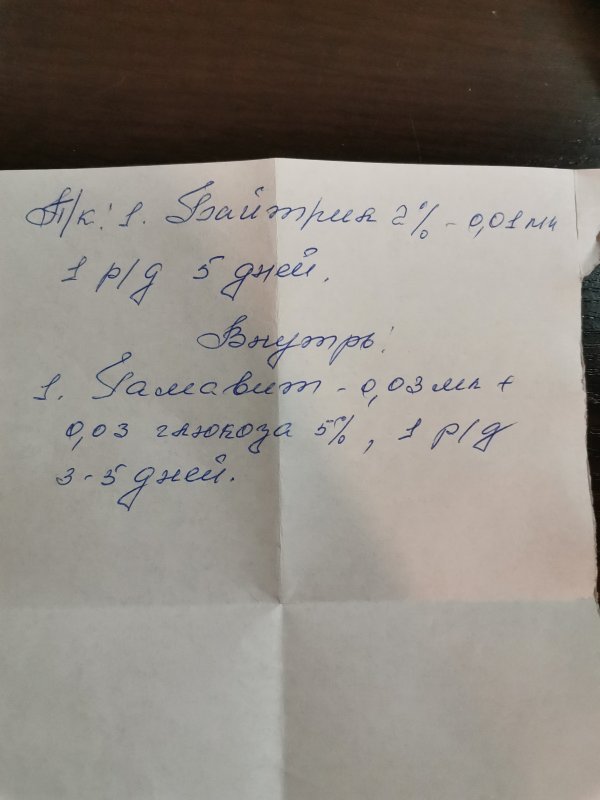 П/к: 1. Байтрил 2% - 0,01 мл
1 р/д 5 дней.
Внутрь:
1. Гамавит - 0,03 мл +
0,03 глюкоза 5%, 1 р/д
3-5 дней.